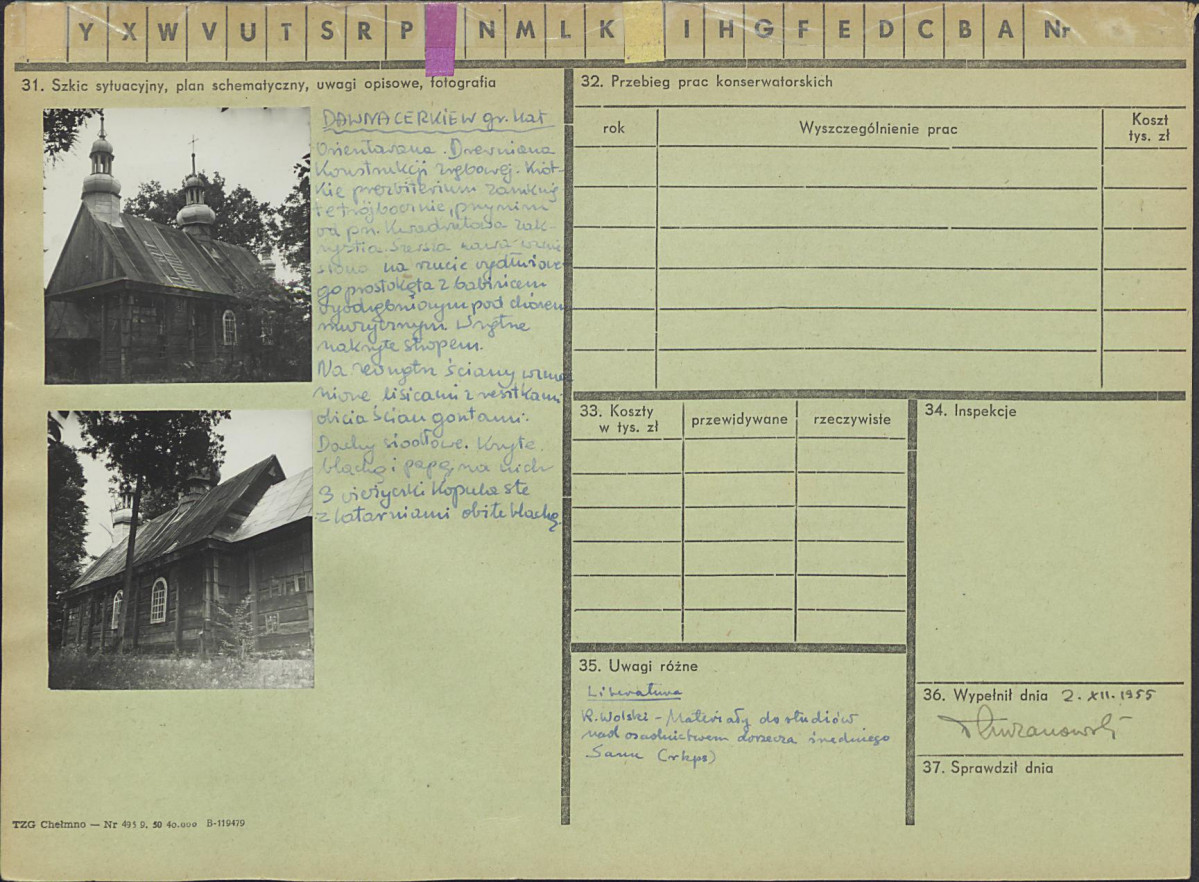 Y X W V U T S R P N M L K I H G F E D C B A Nr
31. Szkic sytuacyjny, plan schematyczny, uwagi opisowe, fotografia
DAWNA CERKIEW gr. kat
Orientowana. Drewniana
Konstrukcji zrębowej. Krót-
kie prezbiterium zamknię
te trójbocznie, przy nim
od pn. kwadratowa zak-
rystia. Szersza nawa wznie
siona na rzucie wydłużone
go prostokąta z babińcem
wyodrębnionym pod chórem
muzycznym. Wnętrze
nakryte stropem.
Na zewnątrz ściany wzmoc
nione lisicami z resztkami
obicia ścian gontami.
Dachy siodłowe. Kryte
blachą i papą, na nich
3 wieżyczki kopulaste
z latarniami obite blachą
TZG Chełmno — Nr 495 9. 50 40.000 B-119479
32. Przebieg prac konserwatorskich
rok
Wyszczególnienie prac
Koszt
tys. zł
33. Koszty
w tys. zł
przewidywane
rzeczywiste
34. Inspekcje
35. Uwagi różne
Literatura
R. Wolski - Materiały do studiów
nad osadnictwem dorzecza średniego
Sanu (rkps)
36. Wypełnił dnia 2. XII. 1955
37. Sprawdził dnia